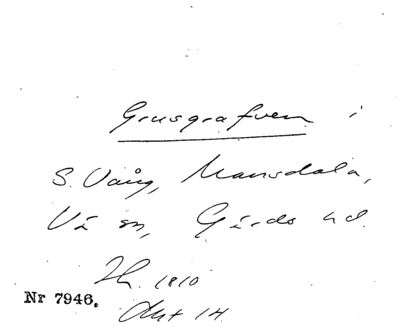 Grusgrafven i
S. Vång, Mansdala,
Vä sn, Gärds hd.
Th. 1810
Nr 7946.